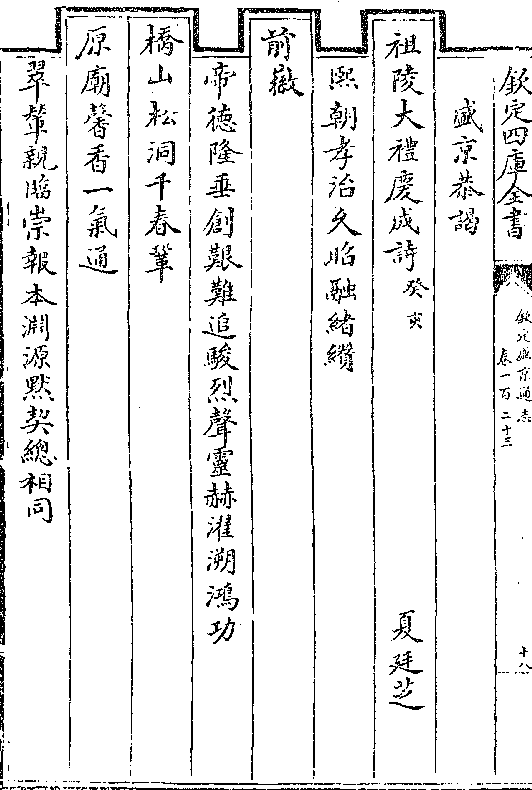 欽定四庫全書
欽定盛京通志
卷一百二十三
十八
盛京恭謁
祖陵大禮慶成詩 癸亥 夏廷芝
熙朝孝治久昭融緒纘
前徽
帝德隆垂創艱難追駿烈聲靈赫濯溯鴻功
橋山松洞千春鞏
原廟馨香一氣通
翠輦親臨崇報本淵源默契總相同